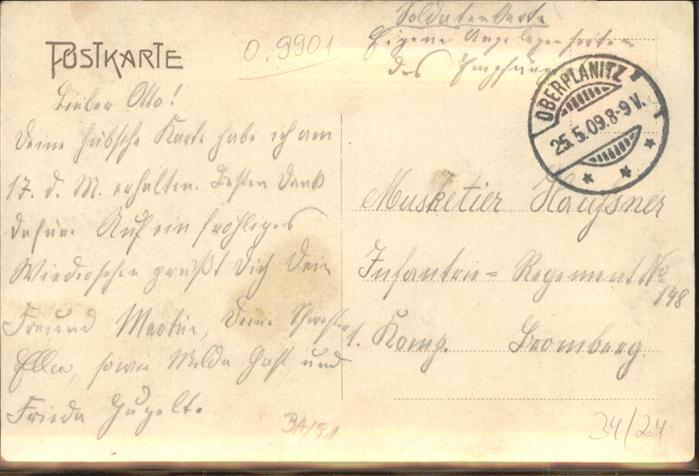 Soldatenkarte
Eigene Angelegenheiten
des Empfängers
POSTKARTE
O.9901
OBERPLANITZ
25.5.09.8-9V.
Lieber Otto!
Deine hübsche Karte habe ich am
17. d. M. erhalten. Besten Dank
dafür. Auf ein fröhliges
Wiedersehen grüßt Dich Dein
Freund Martin, Deine Schwester
Ella, sowie Milda Gast und
Frieda
Musketier Haussner
Infantrie=Regement No
148
1. Komp. Bromberg.
34/24